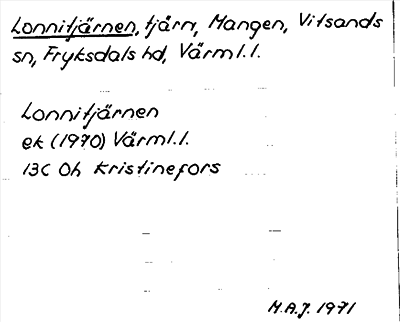 Lonnitjärnen, tjärn, Mangen, Vitsands
sn, Fryksdals hd, Värml.l.
Lonnitjärnen
ek (1970) Värml.l.
13C 0h Kristinefors
M.A.J. 1971